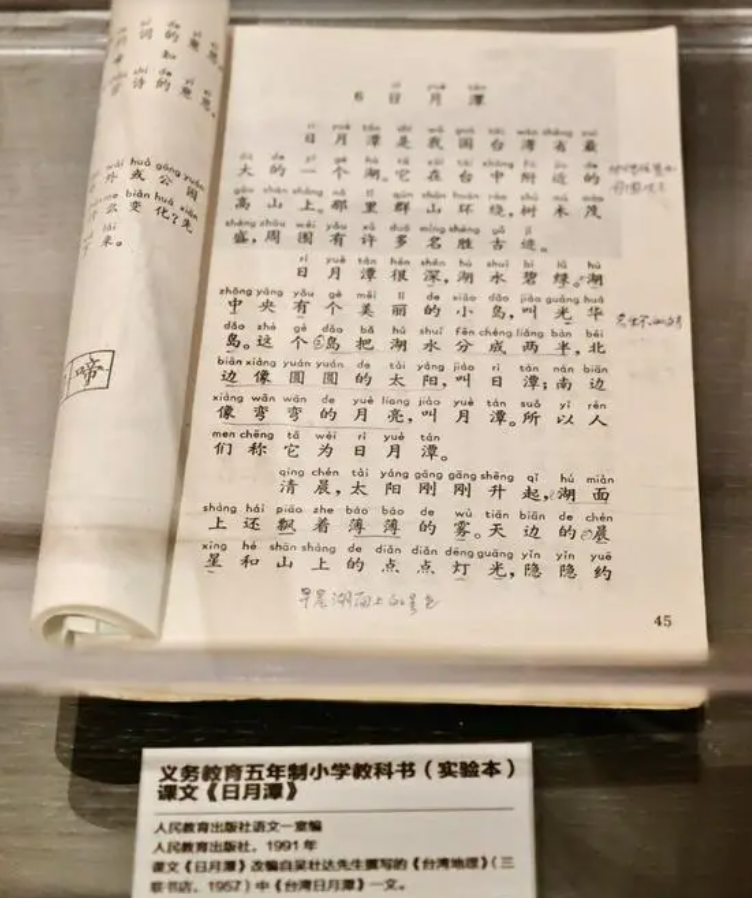 词 的 意 思。
和
shī de yì si
诗 的 意 思。
wài huò gōng yuán
外 或 公 园
biàn huà xiān
么 变 化?先
lái
来。
啼
rì yuè tán
6 日 月 潭
rì yuè tán shì wǒ guó tái wān shěng zuì
日 月 潭 是 我 国 台 湾 省 最
dà de yí gè hú tā zài tái zhōng fù jìn de
大 的 一 个 湖。它 在 台 中 附 近 的
gāo shān shàng nà lǐ qún shān huán rào shù mù mào
高 山 上。那 里 群 山 环 绕,树 木 茂
shèng zhōu wéi yǒu xǔ duō míng shèng gǔ jì
盛,周 围 有 许 多 名 胜 古 迹。
rì yuè tán hěn shēn hú shuǐ bì lǜ hú
日 月 潭 很 深,湖 水 碧 绿。湖
zhōng yāng yǒu gè měi lì de xiǎo dǎo jiào guāng huá
中 央 有 个 美 丽 的 小 岛,叫 光 华
dǎo zhè gè dǎo bǎ hú shuǐ fēn chéng liǎng bàn běi
岛。这 个 岛 把 湖 水 分 成 两 半,北
biān xiàng yuán yuán de tài yáng jiào rì tán nán biān
边 像 圆 圆 的 太 阳,叫 日 潭;南 边
xiàng wān wān de yuè liang jiào yuè tán suǒ yǐ rén
像 弯 弯 的 月 亮,叫 月 潭。所 以 人
men chēng tā wéi rì yuè tán
们 称 它 为 日 月 潭。
qīng chén tài yáng gāng gāng shēng qǐ hú miàn
清 晨,太 阳 刚 刚 升 起,湖 面
shàng hái piāo zhe báo báo de wù tiān biān de chén
上 还 飘 着 薄 薄 的 雾。天 边 的 晨
xīng hé shān shàng de diǎn diǎn dēng guāng yǐn yǐn yuē
星 和 山 上 的 点 点 灯 光,隐 隐 约
早晨湖面上的景色
45
义务教育五年制小学教科书(实验本)
课文《日月潭》
人民教育出版社语文一室编
人民教育出版社,1991年
课文《日月潭》改编自吴壮达先生撰写的《台湾地理》(三
联书店,1957)中《台湾日月潭》一文。